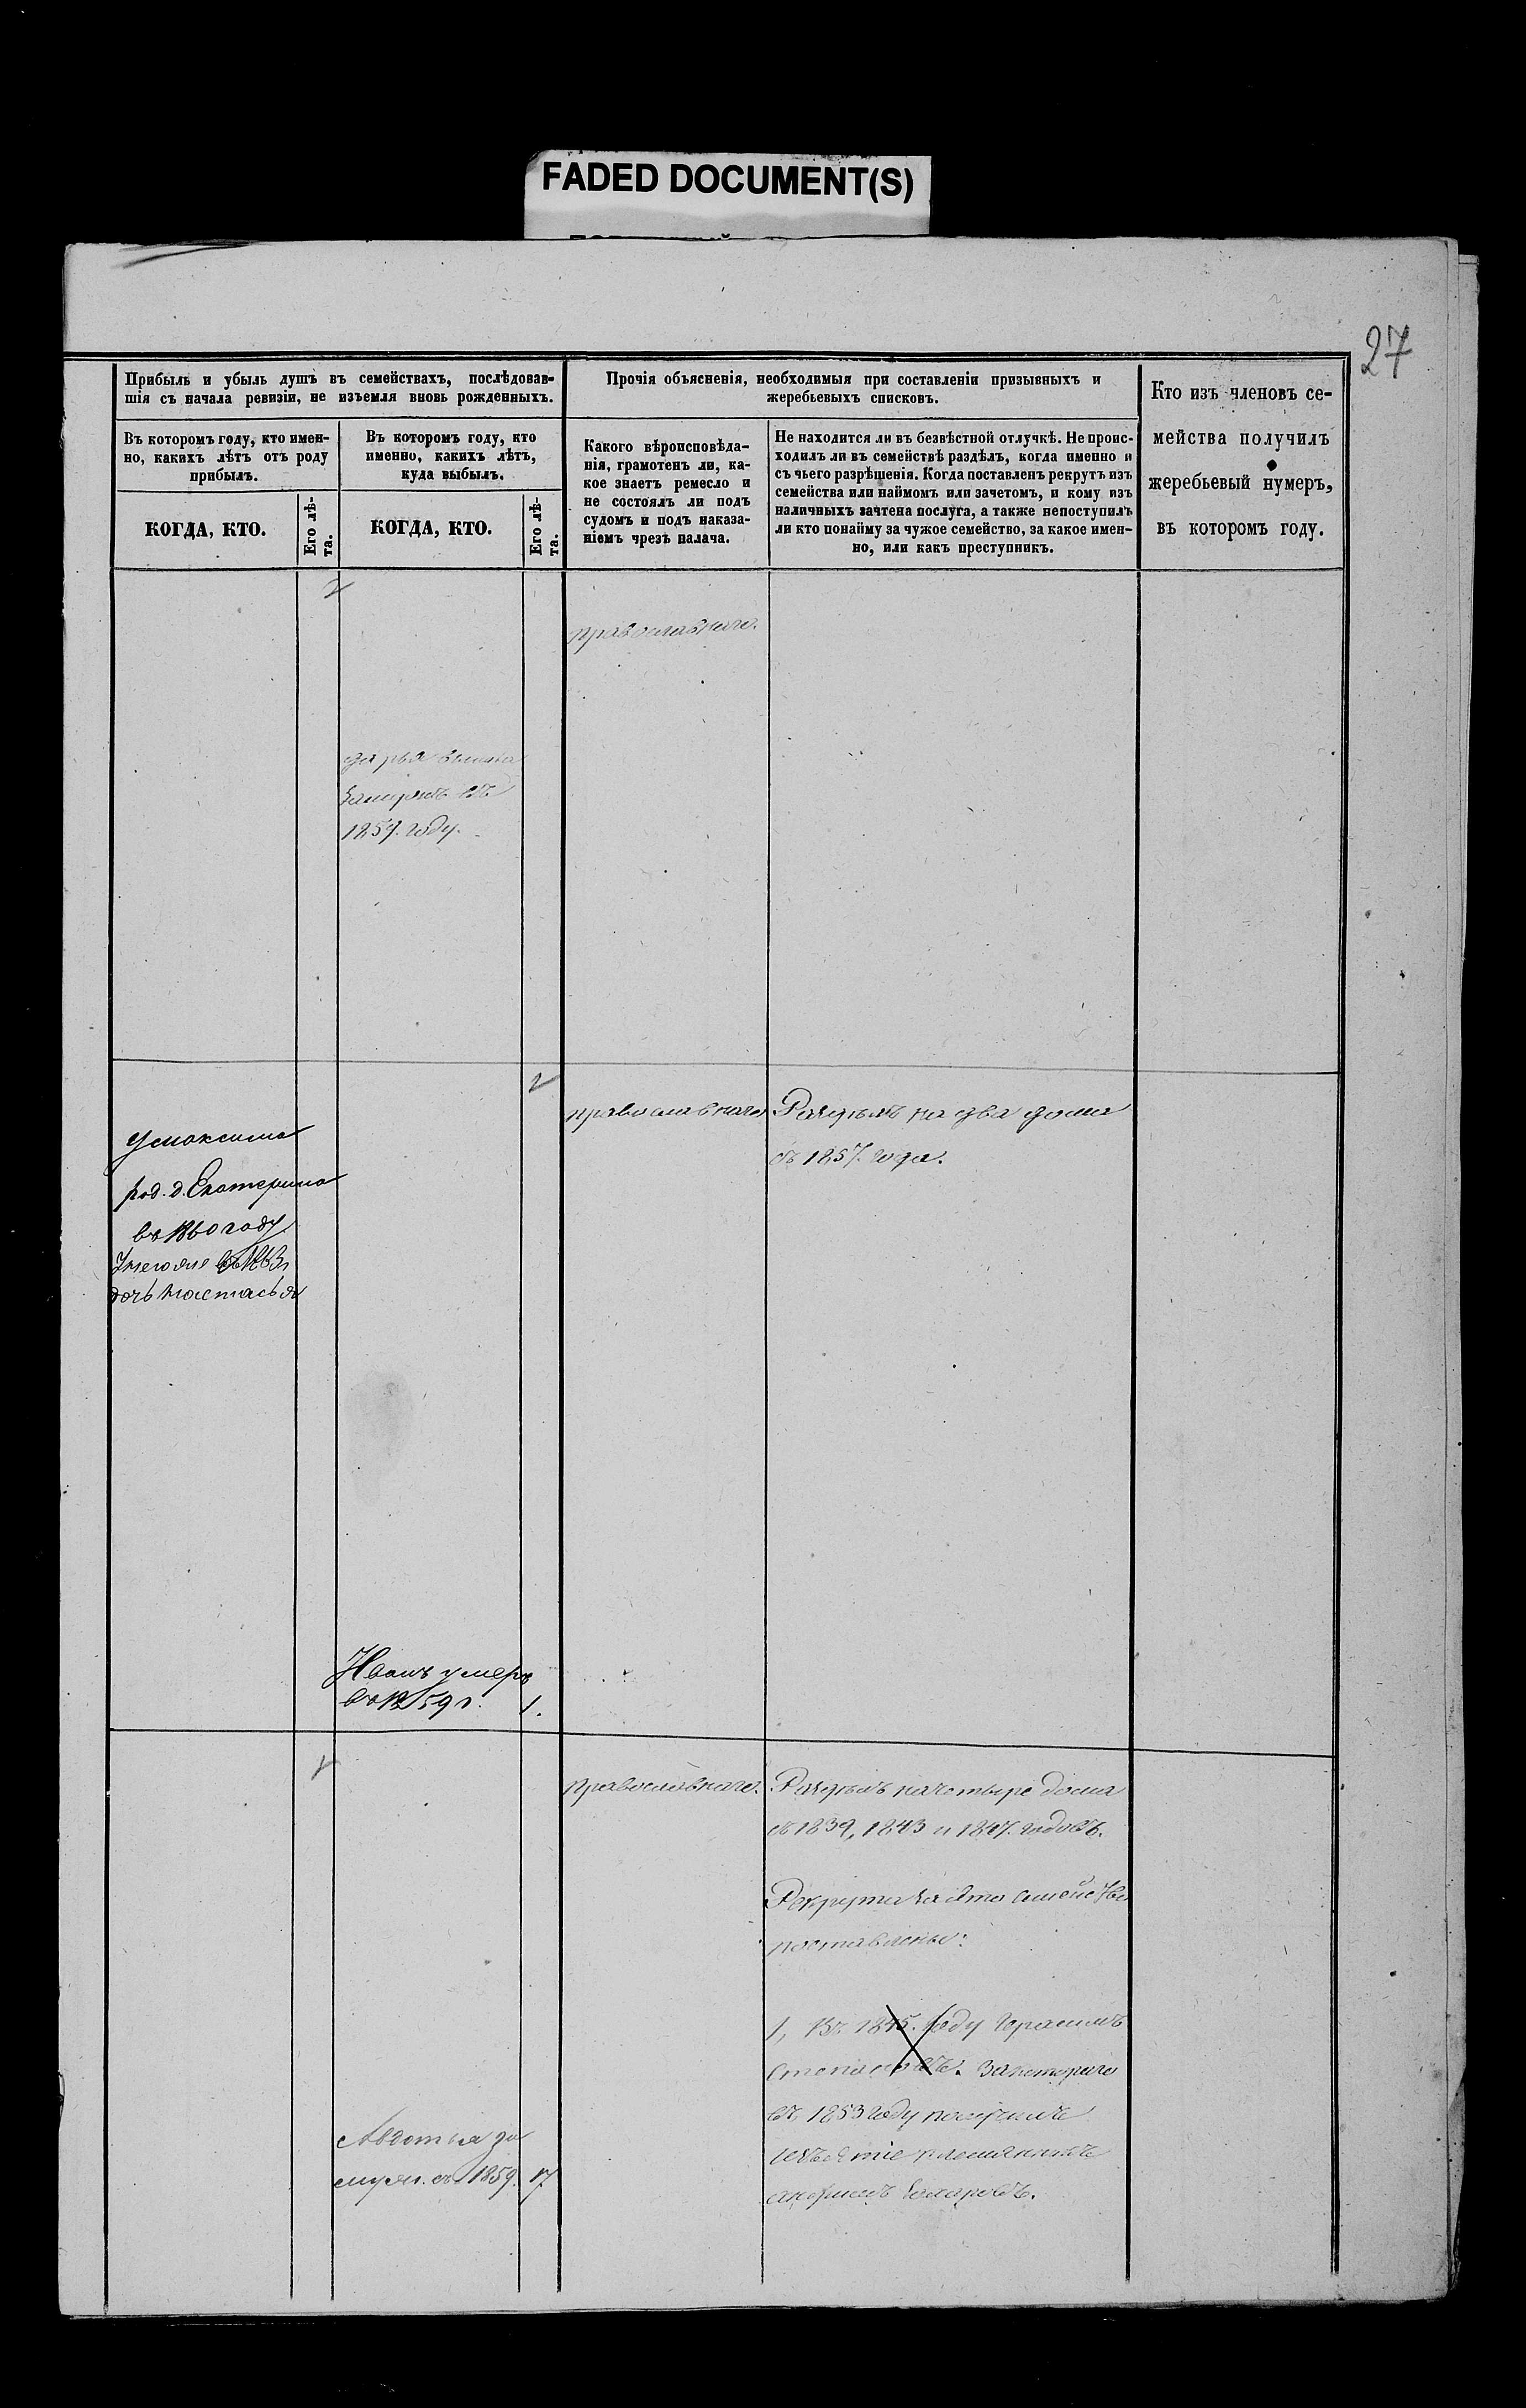 FADED DOCUMENT(S)
27
Прибыль и убыль душъ въ семействахъ, послѣдовав-
шія съ начала ревизіи, не изъемля вновь рожденныхъ.
Въ которомъ году, кто имен-
но, какихъ лѣтъ отъ роду
прибылъ.
КОГДА, КТО.
Его лѣ-
та.
Въ которомъ году, кто
именно, какихъ лѣтъ,
куда выбылъ.
КОГДА, КТО.
Его лѣ-
та.
Прочія объясненія, необходимыя при составленіи призывныхъ и
жеребьевыхъ списковъ.
Какого вѣроисповѣда-
нія, грамотенъ ли, ка-
кое знаетъ ремесло и
не состоялъ ли подъ
судомъ и подъ наказа-
ніемъ чрезъ палача.
Не находится ли въ безвѣстной отлучкѣ. Не проис-
ходилъ ли въ семействѣ раздѣлъ, когда именно и
съ чьего разрѣшенія. Когда поставленъ рекрутъ изъ
семейства или наймомъ или зачетомъ, и кому изъ
наличныхъ зачтена послуга, а также непоступилъ
ли кто понайму за чужое семейство, за какое имен-
но, или какъ преступникъ.
Кто изъ членовъ се-
мейства получилъ
жеребьевый нумеръ,
въ которомъ году.
православнаго.
дарья вышла
замужъ въ
1859. году.
православнаго
Раздѣлъ на два дома
съ 1857. года.
Умаксима
род. д. Екатерина
въ 1860 году
Унегоже въ 1863
дочь Настасья
Иванъ умеръ
въ 1859 г. 1.
православнаго.
Раздѣлъ начетыре дома
съ 1839, 1843 и 1847. годовъ.
Рекрута за это семейство
поставлены:
1, Въ 1845. году Герасимъ
Степановъ. Закотораго
въ 1853 году получилъ
племянникъ
Захаровъ.
за
муж. въ 1859. 17.